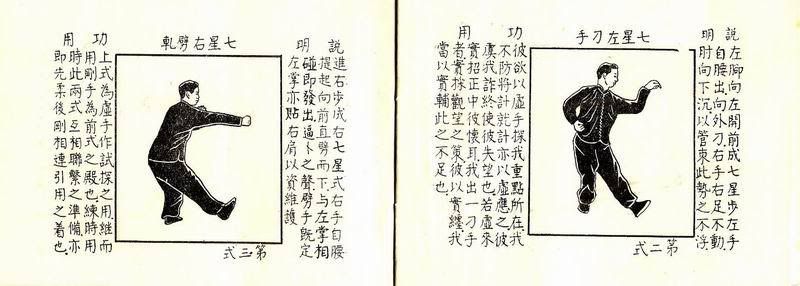 七星左刁手
說明
左脚向左開前成七星步左手
自腰出向外刁右手右足不動
肘向下沉以管束此勢之不浮
功用
彼欲以虛手探我重點所在我
不防將計就計亦以虛應之彼
虞我詐終使彼失望也若虛來
實招正中彼懷耳我出一刁手
者實採觀望之策彼以實纏我
當以實輔此之不足也
第二式
七星右劈軌
說明
進右步成右七星式右手自腰
提起向前直劈而下與左掌相
碰即發出逼卜之聲劈手既定
左掌亦貼右肩以資維護
功用
上式為虛手作試探之用維而
用剛手為前式之殿也練時用
時此兩式互相聯繫之準備亦
即先柔後剛相連引用之着也
第三式